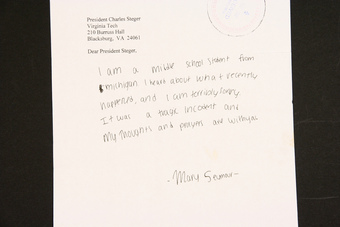 President Charles Steger
Virginia Tech
210 Burruss Hall
Blacksburg, VA 24061
Dear President Steger,
I am a middle school student from
michigan I heard about what recently
happened, and I am terribly sorry.
It was a tragic incident and
My thoughts and prayers are with you
- Mary